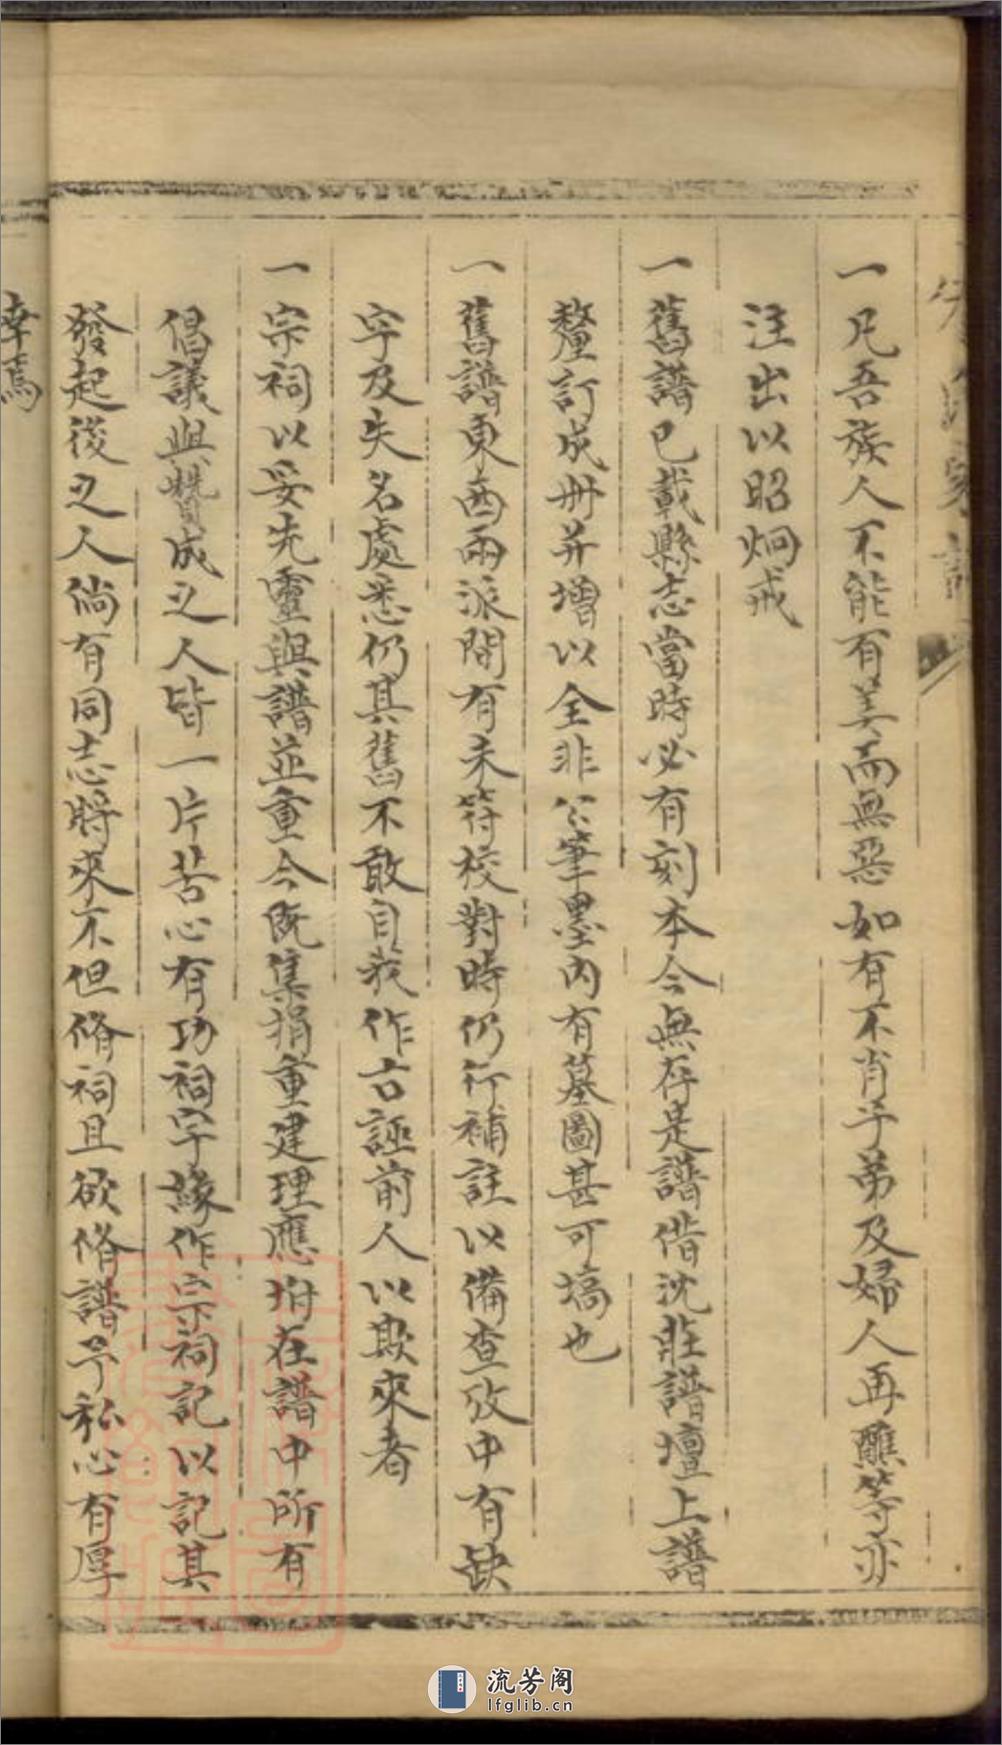 一凡吾族人不能有美而無惡如有不肖子弟及婦人再醮等亦
注出以昭炯戒
一舊譜已載縣志當時必有刻本今無存是譜借沈莊譜壇上譜
釐訂成冊并增以全非公筆墨內有墓圖甚可塙也
一舊譜東西兩派間有未符校對時仍行補註以備查攷中有缺
字及失名處悉仍其舊不敢自我作古誣前人以欺來者
一宗祠以妥先靈與譜並重今既集捐重建理應坿在譜中所有
倡議與贊成之人皆一片苦心有功祠宇緣作宗祠記以記其
發起後之人倘有同志將來不但脩祠且欲脩譜予私心有厚
幸焉
流芳阁
lfglib.cn